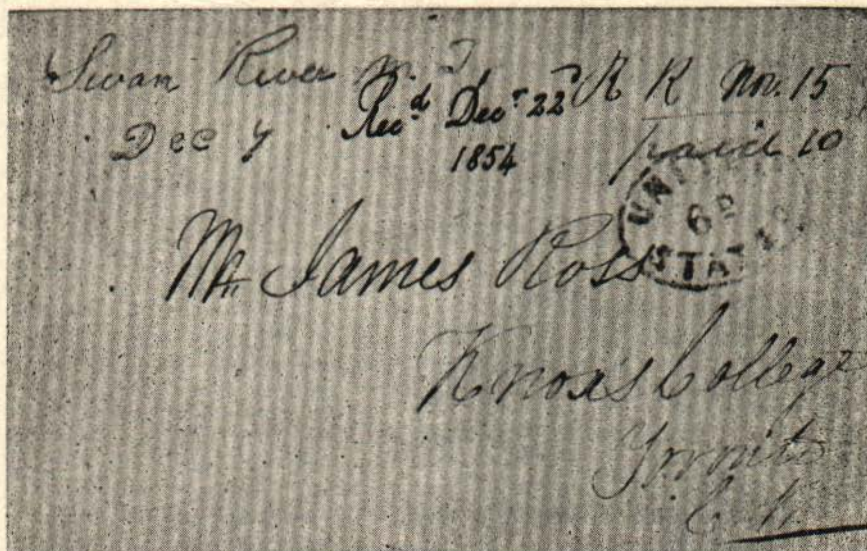 Swan River M. T.
Dec 7
Rec^d Dec^r 22^d
1854
R R Nov. 15
paid 10
UNITED
6^D
STATES
Mr. James Ross
Knox's College
Toronto
C. W.